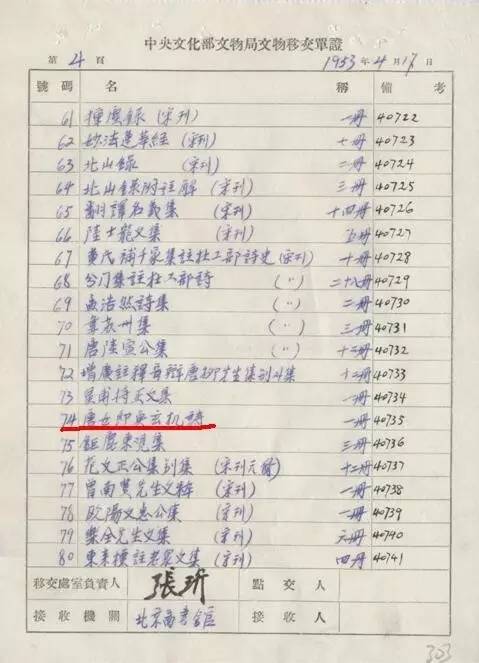 中央文化部文物局文物移交單證
第 4 頁 1953 年 4 月 17 日
號碼 名 稱 備考
61 揮麈錄 (宋刊) 一冊 40722
62 妙法蓮華經 (宋刊) 七冊 40723
63 北山錄 (宋刊) 二冊 40724
64 北山錄附註解 (宋刊) 三冊 40725
65 翻譯名義集 (宋刊) 十四冊 40726
66 陸士龍文集 (宋刊) 五冊 40727
67 黄氏補千家集註杜工部詩史 (宋刊) 十冊 40728
68 分门集註杜工部詩 (〃) 二十八冊 40729
69 孟浩然詩集 (〃) 二冊 40730
70 韋蘇州集 (〃) 三冊 40731
71 唐陸宣公集 (〃) 十二冊 40732
72 增廣註釋音辯唐柳先生集別外集 十二冊 40733
73 皇甫持正文集 一冊 40734
74 唐女郎魚玄机詩 一冊 40735
75 鉅鹿東觀集 三冊 40736
76 范文正公集別集 (宋刊元修) 十二冊 40737
77 曾南豐先生文粹 (宋刊) 一冊 40738
78 歐陽文忠公集 (宋刊) 一冊 40739
79 樂全先生文集 (宋刊) 六冊 40740
80 東來標註老泉文集 (宋刊) 四冊 40741
移交處室負責人 張珩 點交人
接收機關 北京圖書館 接收人
303